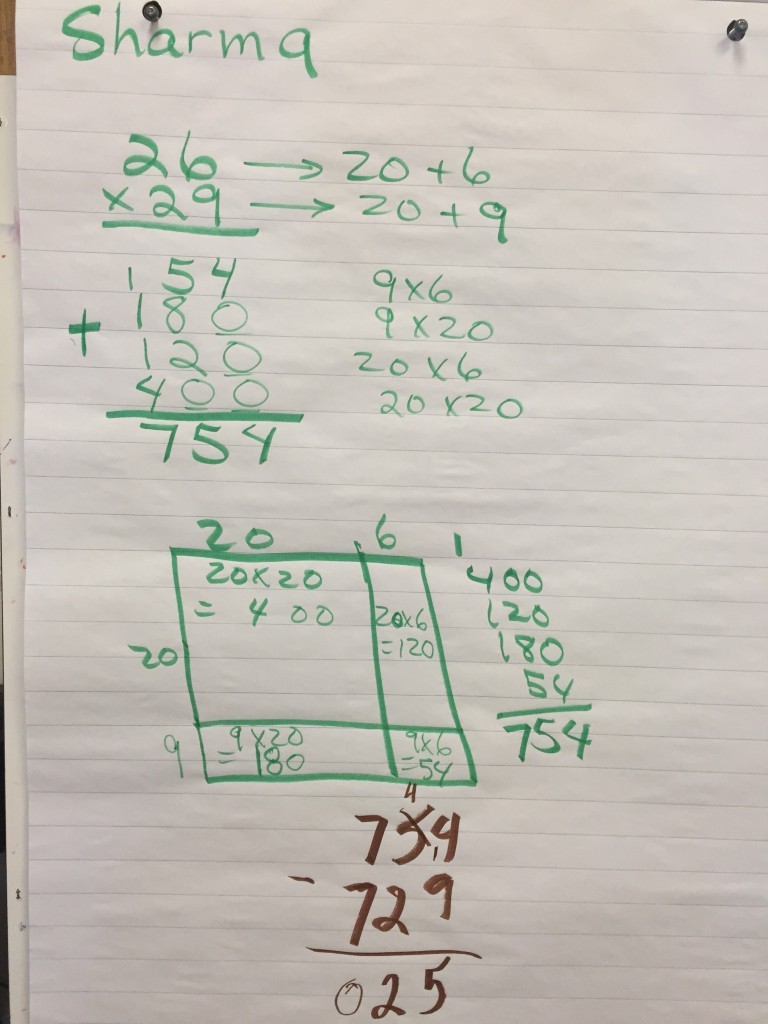 Sharma
26 → 20 + 6
× 29 → 20 + 9
1
54 9×6
+ 180 9×20
120 20×6
400 20×20
754
20 6
20×20
= 400
20×6
=120
20
9
9×20
= 180
9×6
=54
1
400
120
180
54
754
4
754
1
- 729
025